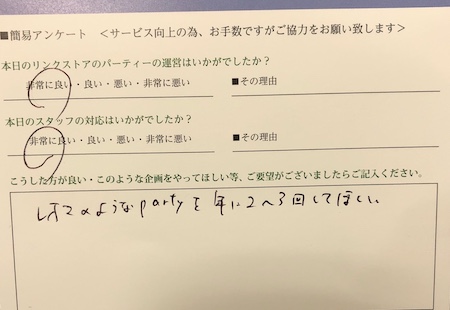 ■簡易アンケート ＜サービス向上の為、お手数ですがご協力をお願い致します＞
本日のリンクストアのパーティーの運営はいかがでしたか？
非常に良い・良い・悪い・非常に悪い ■その理由
本日のスタッフの対応はいかがでしたか？
非常に良い・良い・悪い・非常に悪い ■その理由
こうした方が良い・このような企画をやってほしい等、ご要望がございましたらご記入ください。
のようなpartyを年に2～3回してほしい。